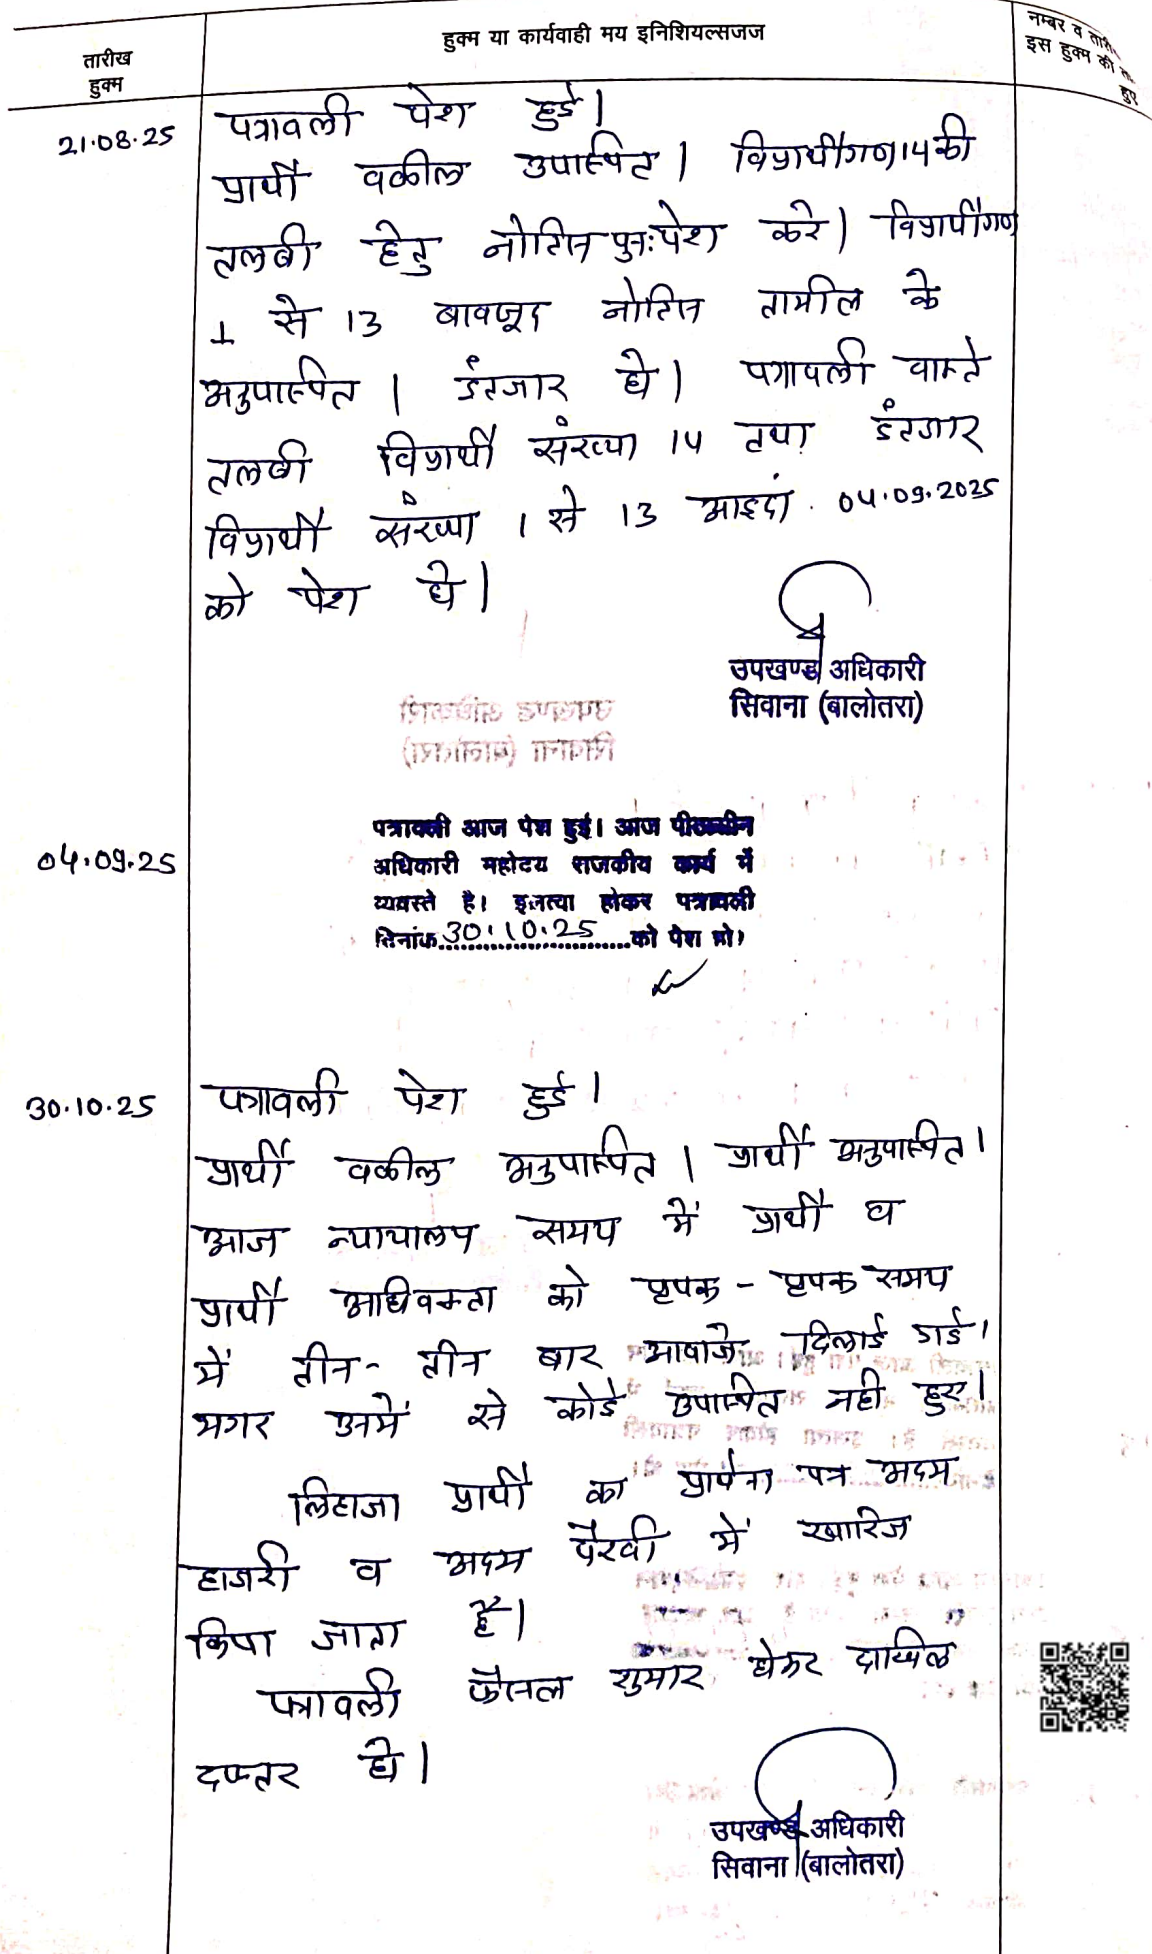 तारीख
हुक्म
हुक्म या कार्यवाही मय इनिशियल्सजज
नम्बर व
इस हुक्म की
हुए
21.08.25
पत्रावली पेश हुई।
प्रार्थी वकील उपस्थित। विप्रार्थीगण 14 की
तलबी हेतु नोटिस पुन: पेश करे। विप्रार्थीगण
1 से 13 बावजूद नोटिस तामील के
अनुपस्थित। इंतजार हो। पत्रावली वास्ते
तलबी विप्रार्थी संख्या 14 तथा इंतजार
विप्रार्थी संख्या 1 से 13 आइंदा 04.09.2025
को पेश हो।
उपखण्ड अधिकारी
सिवाना (बालोतरा)
04.09.25
पत्रावली आज पेश हुई। आज पीठासीन
अधिकारी महोदय राजकीय कार्य में
व्यस्त है। इत्तला होकर पत्रावली
दिनांक 30.10.25 को पेश हो।
30.10.25
पत्रावली पेश हुई।
प्रार्थी वकील अनुपस्थित। प्रार्थी अनुपस्थित।
आज न्यायालय समय में प्रार्थी व
प्रार्थी अधिवक्ता को पृथक - पृथक समय
में तीन - तीन बार आवाजे दिलाई गई।
मगर उनमें से कोई उपस्थित नही हुए।
लिहाजा प्रार्थी का प्रार्थना पत्र अदम
हाजरी व अदम पैरवी में खारिज
किया जाता है।
पत्रावली फैसल शुमार होकर दाखिल
दफ्तर हो।
उपखण्ड अधिकारी
सिवाना (बालोतरा)